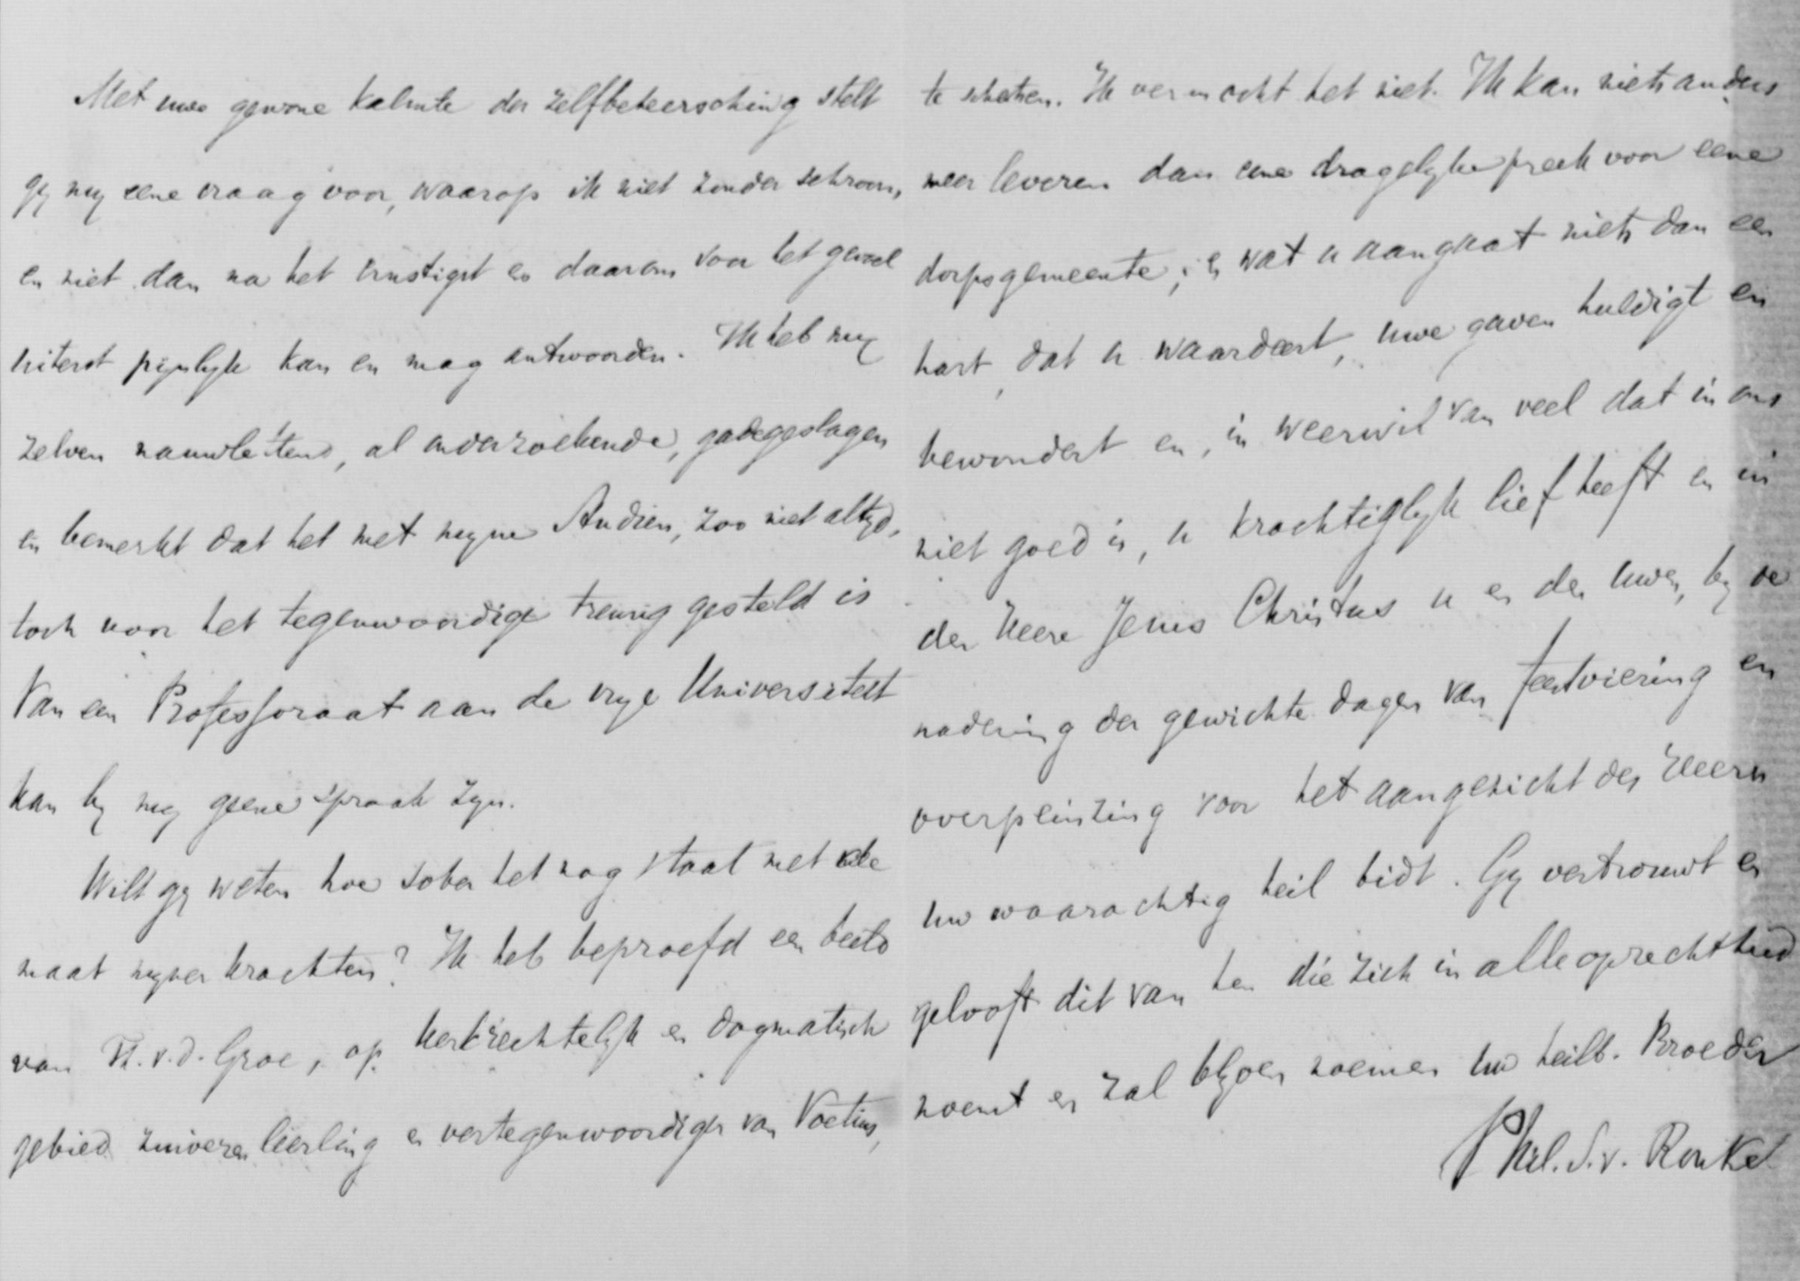 Met uwe gewone kalmte der zelfbeheersching stelt
gy my eene vraag voor, waarop ik niet zonder schroom,
en niet dan na het ernstigst en daarom voor het gevoel
uiterst pijnlyk kan en mag antwoorden. Ik heb my
zelven nauwlettend, al onderzoekende, gadegeslagen
en bemerkt dat het met myne Studien, zoo niet altyd,
toch voor het tegenwoordige treurig gesteld is
Van een Professoraat aan de vrye Universiteit
kan by my geene spraak zyn.
Wilt gy weten hoe sober het nog staat met de
maat myner krachten? Ik heb beproefd een beeld
van Th. v. d. Groe, op kerkrechtelyk en dogmatisch
gebied zuiveren leerling en vertegenwoordiger van Voetius,
te schetsen. Ik vermocht het niet. Ik kan niets anders
meer leveren dan eene dragelyke preek voor eene
dorpsgemeente; en wat u aangaat niets dan een
hart, dat u waardeert, uwe gaven huldigt en
bewondert en, in weerwil van veel dat in ons
niet goed is, u krachtiglyk lief heeft en in
den Heere Jezus Christus u en den uwen, by de
nadering der gewichte dagen van feestviering en
overpeinzing voor het aangezicht des Heeren
uw waarachtig heil bidt. Gy vertrouwt en
gelooft dit van hen die zich in alle oprechtheid
noemt en zal blyven noemen uw heilb. Broeder
Phil. S. v. Ronkel